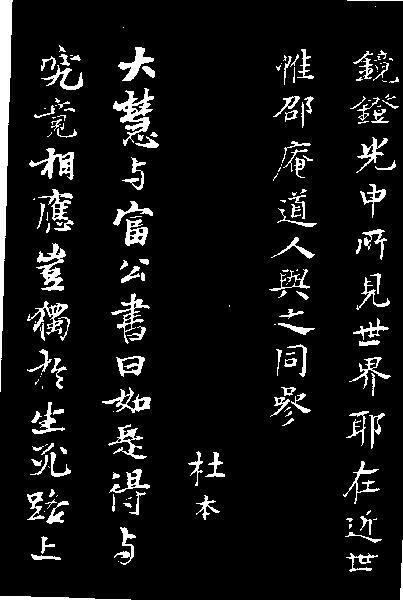 鏡鐙光中所見世界耶在近世
惟邵庵道人與之同參
杜本
大慧与富公書曰如是得与
究竟相應豈獨於生死路上